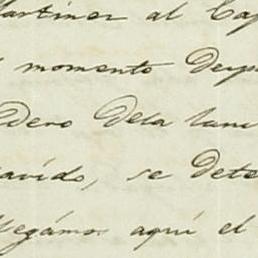 artinez al Cap
momento desp
dero dela lan
avido, se dete
llegámos aquí el